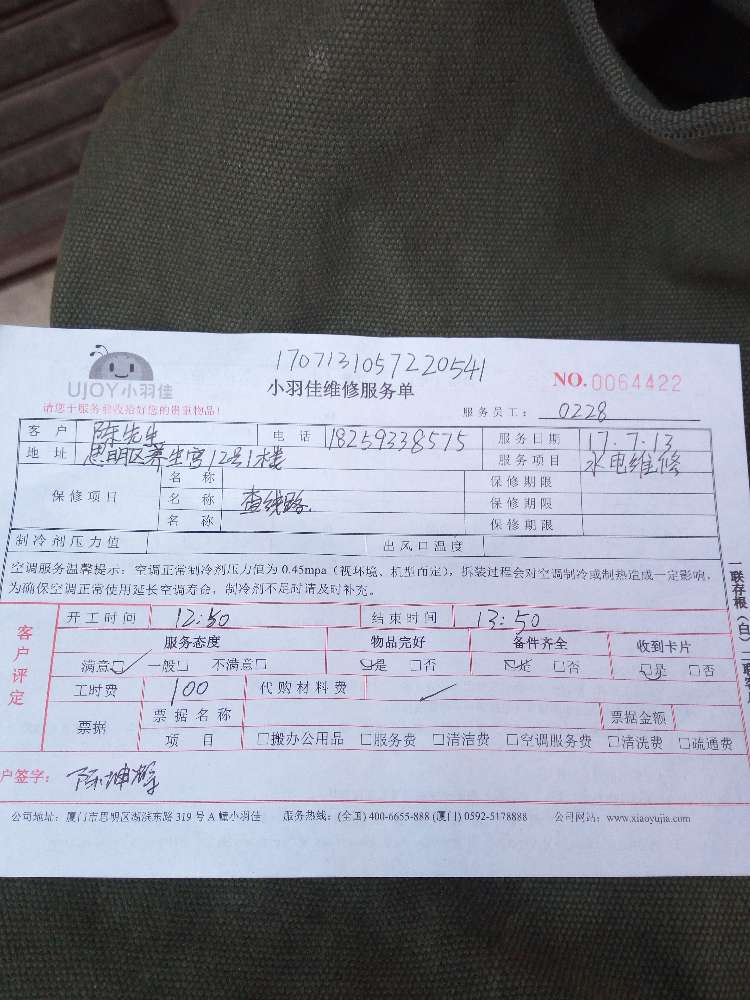 1707131057220541
UJOY小羽佳
小羽佳维修服务单
NO.0064422
请您于服务前收拾好您的贵重物品!
服务员工: 0228
客户 陈先生 电话 18259338575 服务日期 17.7.13
地址 思明区养生宫12号1楼 服务项目 水电维修
保修项目
名称 保修期限
名称 查线路 保修期限
名称 保修期限
制冷剂压力值 出风口温度
空调服务温馨提示:空调正常制冷剂压力值为0.45mpa(视环境、机型而定),拆装过程会对空调制冷或制热造成一定影响,
为确保空调正常使用延长空调寿命,制冷剂不足时请及时补充。
客户评定
开工时间 12:50 结束时间 13:50
服务态度 物品完好 备件齐全 收到卡片
满意☑ 一般□ 不满意□ ☑是 □否 ☑是 □否 ☑是 □否
工时费 100 代购材料费
票据 票据名称 票据金额
项目 □搬办公用品 □服务费 □清洁费 □空调服务费 □清洗费 □疏通费
户签字: 陈坤
公司地址:厦门市思明区湖滨东路319号A幢小羽佳 服务热线:(全国)400-6655-888 (厦门) 0592-5178888 公司网站:www.xiaoyujia.com
一联存根(白)二联客